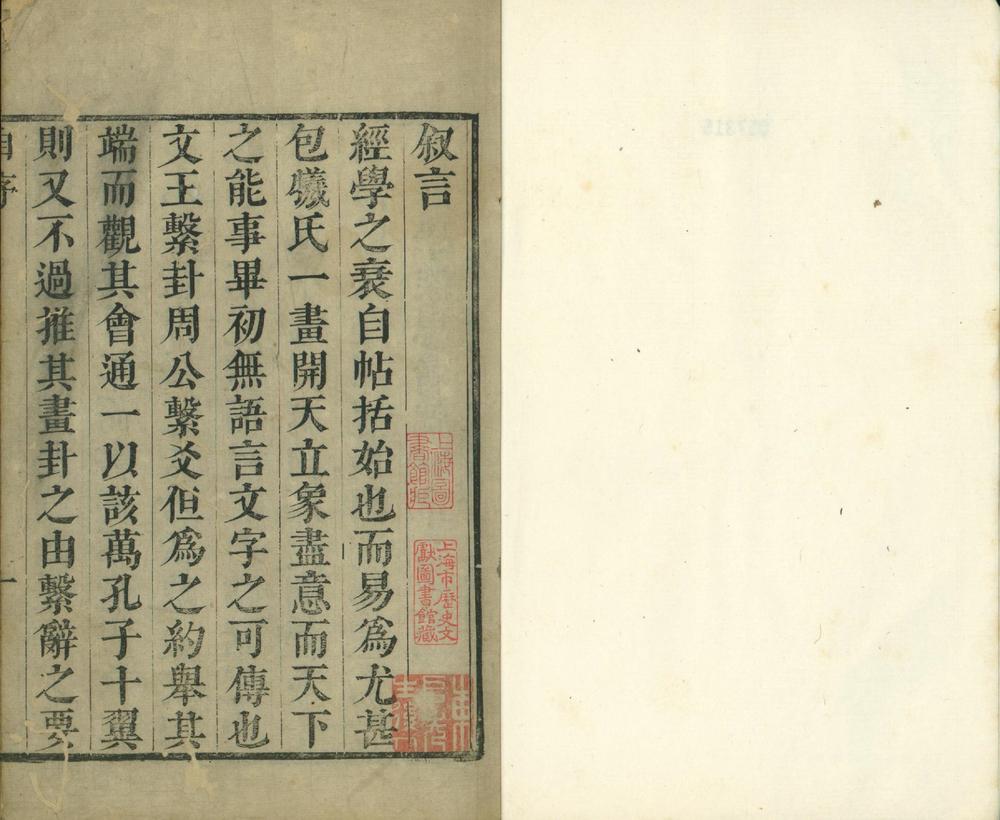 叙言
經學之衰自帖括始也而易爲尤甚
包犧氏一畫開天立象盡意而天下
之能事畢初無語言文字之可傳也
文王繫卦周公繫爻但爲之約舉其
端而觀其會通一以該萬孔子十翼
則又不過推其畫卦之由繫辭之要
自序
一
上海圖書館藏
上海市歷史文獻圖書館藏